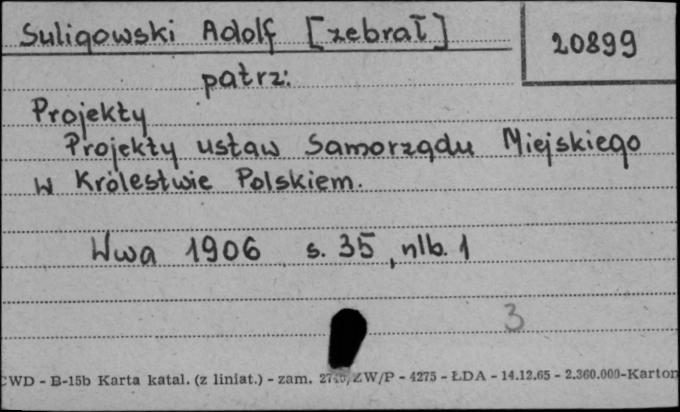 Suligowski Adolf [zebrał]
20899
patrz:
Projekty
Projekty ustaw Samorządu Miejskiego
w Królestwie Polskiem.
Wwa 1906 s. 35, nlb. 1
3
CWD - B-15b Karta katal. (z liniat.) - zam. ZW/P - 4275 - ŁDA - 14.12.65 - 2.360.000-Karton